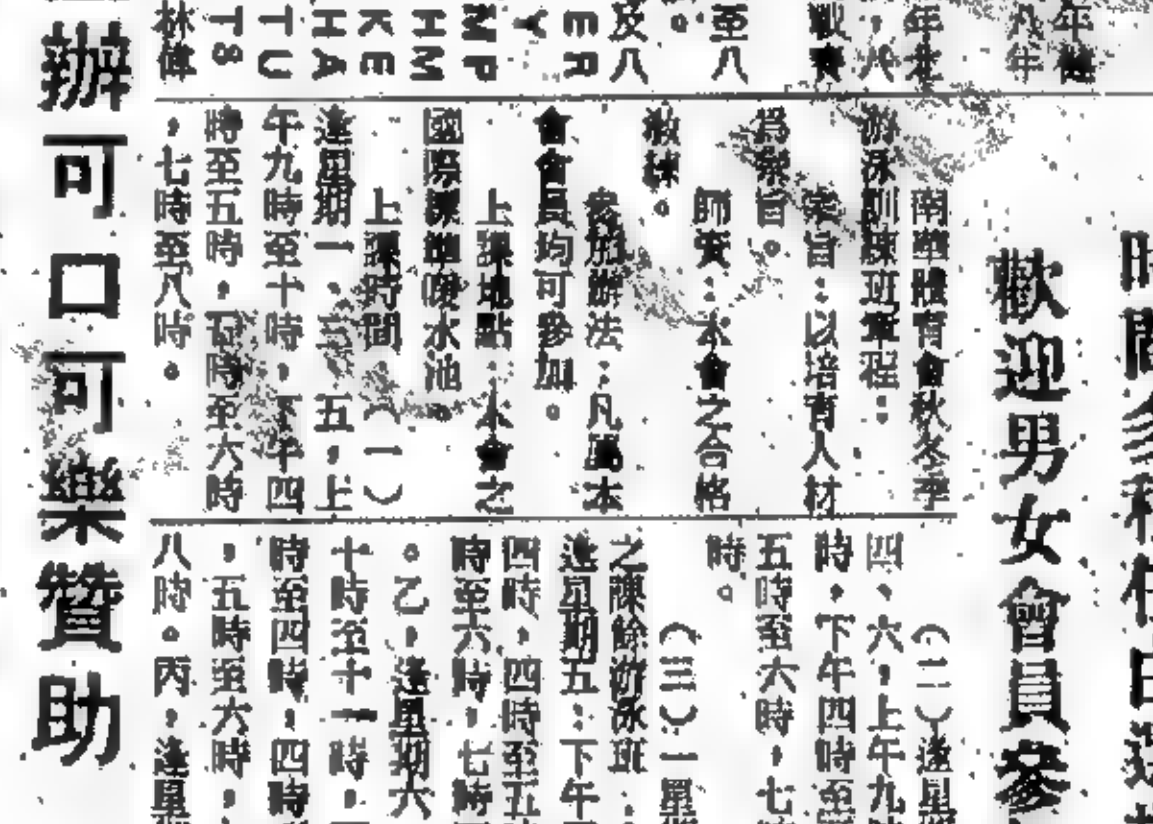 時間
歡迎男女會員參
年
八年
年
，八
至八
。
及八
ER
Y
MP
HM
KE
HA
TU
T8
林偉
南華體育會秋冬季
游泳訓練班章程：
宗旨：以培育人材
爲宗旨。
師資：本會之合格
教練。
參加辦法：凡屬本
會會員均可參加。
上課地點：本會之
國際標準暖水池。
上課時間：（一）
逢星期一，三，五，上
午九時至十時，下午四
時至五時，五時至六時
，七時至八時。
（二）逢星
四、六，上午九
時，下午四時至
五時至六時，七
時。
（三）一星
之課餘游泳班
逢星期五：下午
四時，四時至五
時至六時，七時
。乙，逢星期六
十時至十一時，
時至四時，四時
，五時至六時，
八時。丙，逢星
辦可口可樂贊助